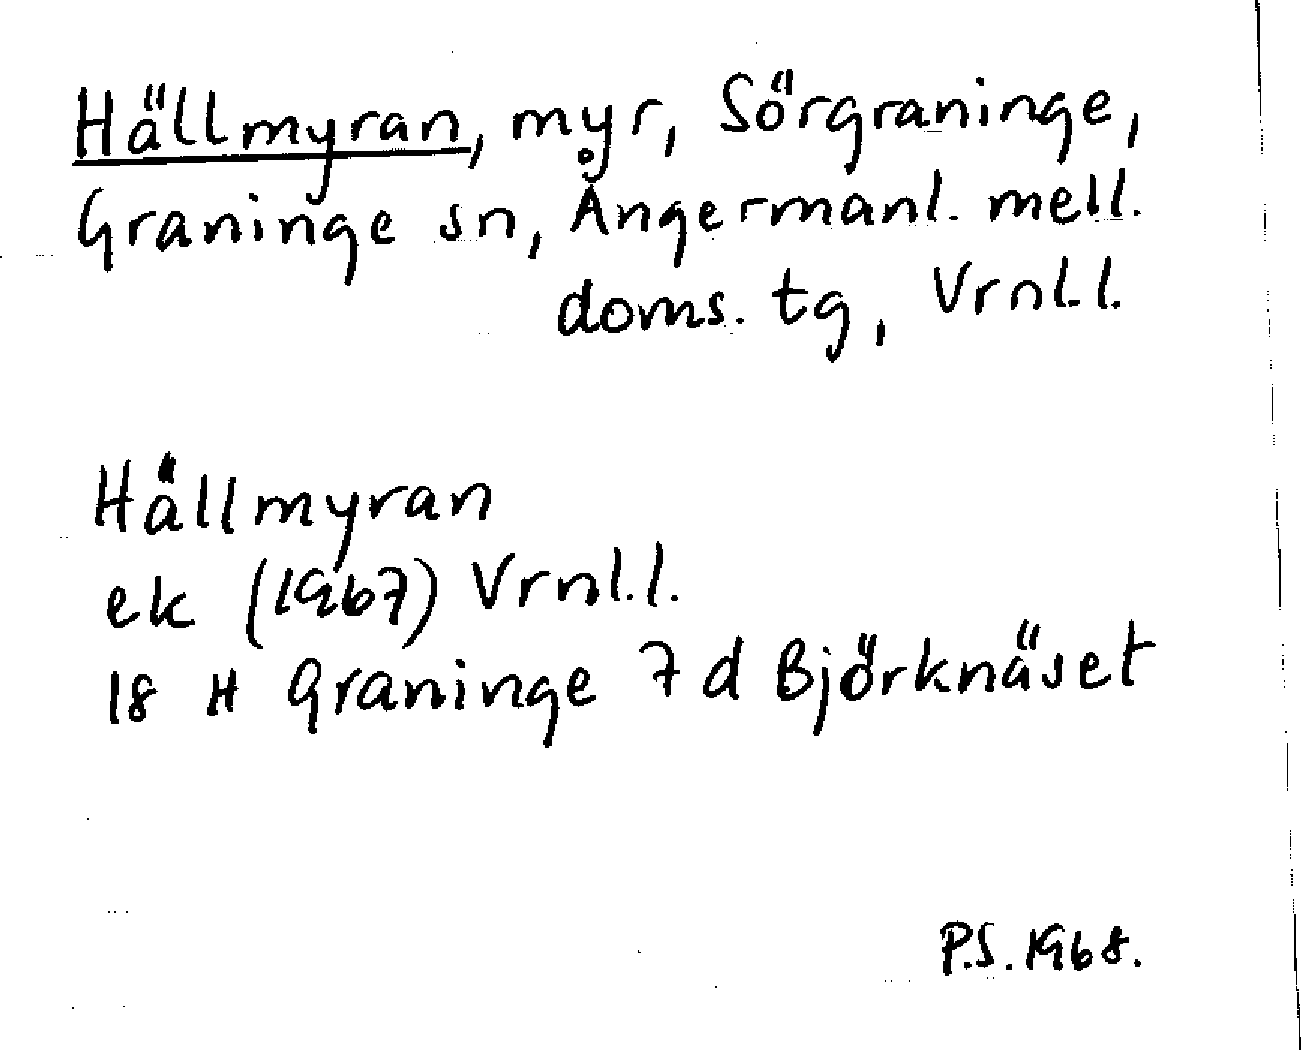 Hällmyran, myr, Sörgraninge,
Graninge sn, Ångermanl. mell.
doms. tg, Vrnl.l.
Hällmyran
ek (1967) Vrnl.l.
18 H Graninge 7 d Björknäset
P.S. 1968.